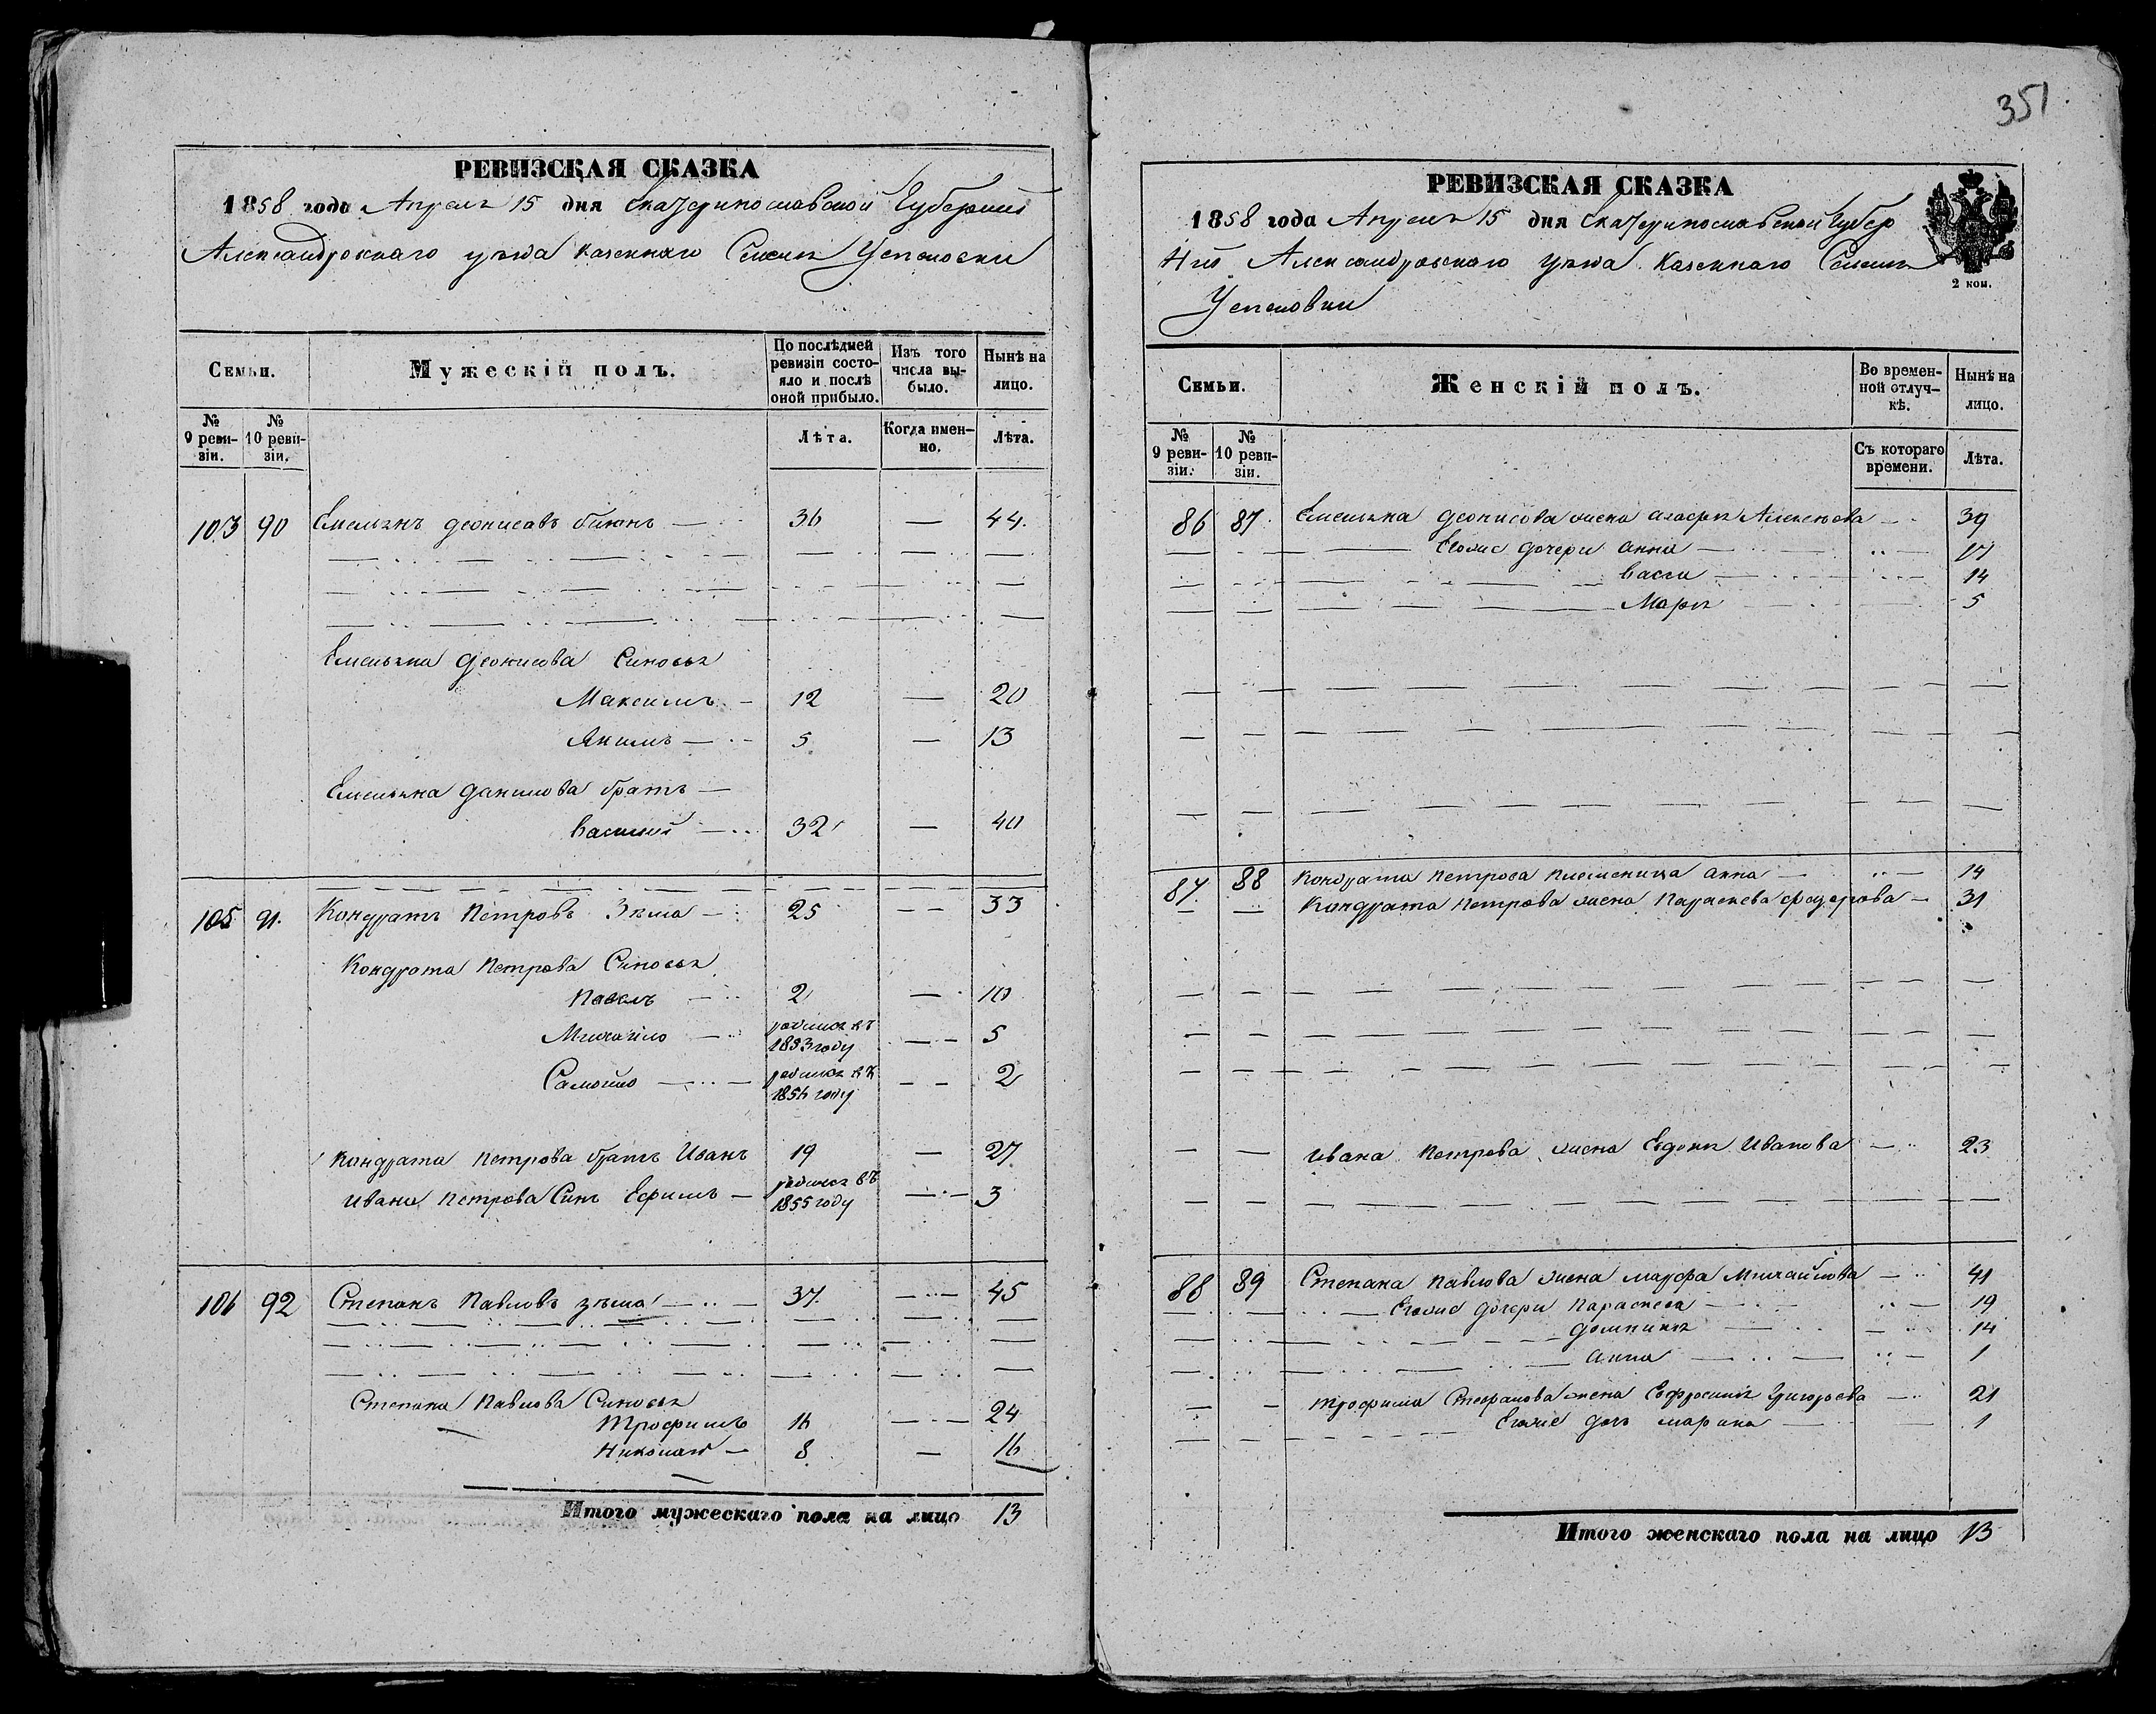 351
РЕВИЗСКАЯ СКАЗКА
1858 года Апреля 15 дня Екатеринославской Губернии
Александровскаго уезда казеннаго Селения Успеновки
Семьи.
Мужескій полъ.
По послѣдней ревизіи состо-
яло и послѣ
оной прибыло.
Изъ того
числа вы-
было.
Нынѣ на
лицо.
№
9 реви-
зіи.
№
10 реви-
зіи.
Лѣта.
Когда имен-
но.
Лѣта.
103 90 Емельянъ Деонисавъ 36 — 44.
Емельяна Деонисова Синовья
Максимъ — 12 — 20
Якимъ — 5 — 13
Емельяна Данилова братъ —
Василий — 32 — 40
105 91. Кондратъ Петровъ Зѣма — 25 — 33
Кондрата Петрова Синовья
Павелъ — 2 — 10
Михайло — родился въ 1853 году — 5
Самойло — родился въ 1856 году — 2
Кондрата Петрова братъ Иванъ 19 — 27
Ивана Петрова Синъ Ефимъ — родился въ 1855 году — 3
106 92 Степанъ Павловъ зѣма — 37. — 45
Степана Павлова Синовья
Трофимъ 16 — 24
Николай — 8 — 16
Итого мужескаго пола на лицо 13
РЕВИЗСКАЯ СКАЗКА
1858 года Апреля 15 дня Екатеринославской Губер
нии Александровскаго уезда казеннаго Селения
Успеновки
2 коп.
Семьи.
Женскій полъ.
Во времен-
ной отлуч-
кѣ.
Нынѣ на
лицо.
№
9 реви-
зіи.
№
10 реви-
зіи.
Съ котораго
времени.
Лѣта.
86 87 Емельяна Деонисова жена Алексѣева — 39
Егоже дочери Анна — 17
14
Марья 5
87. 88 Кондрата Петрова племеница Анна — 14
Кондрата Петрова жена Параскева Федорова — 31
Ивана Петрова жена Евдокия Иванова — 23
88 89 Степана Павлова жена Марфа Михайлова — 41
Егоже дочери Параскева — 19
Домникия 14
Анна — 1
Трофима Стефанова жена Ефросиния Григорьева — 21
Егоже дочь Марина — 1
Итого женскаго пола на лицо 13